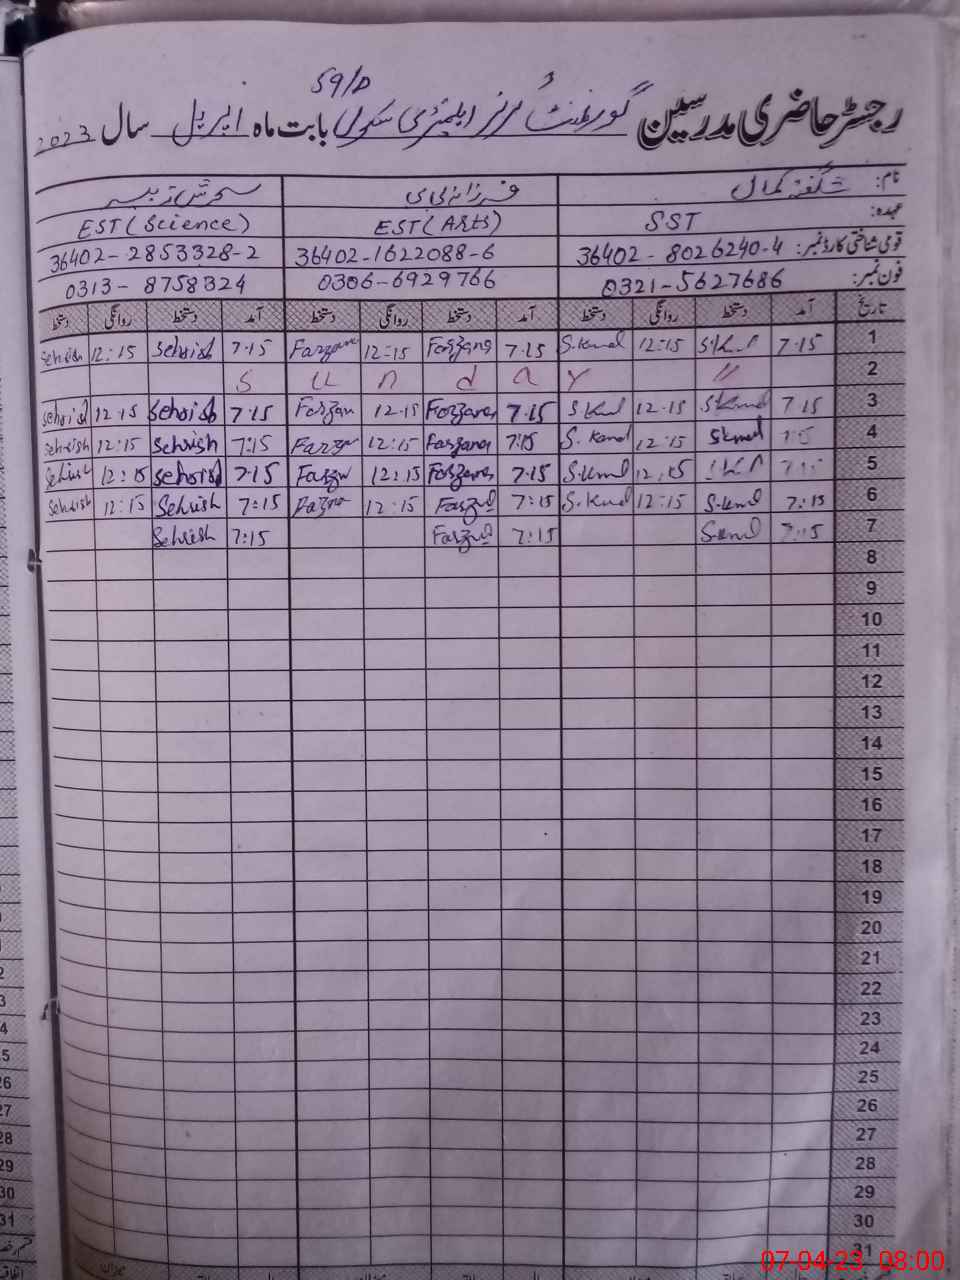 59/D
رجسٹر حاضری مدرسین گورنمنٹ گرلز ایلیمنٹری سکول بابت ماہ اپریل سال 2023
نام: شگفتہ کمال فرزانہ بی بی سحرش زیب
عہدہ: SST EST (Arts) EST (Science)
قومی شناختی کارڈ نمبر: 36402-8026240-4 36402-1622088-6 36402-2853328-2
فون نمبر: 0321-5627686 0306-6929766 0313-8758324
تاریخ آمد دستخط روانگی دستخط آمد دستخط روانگی دستخط آمد دستخط روانگی دستخط
Sehrish 12:15 Sehrish 7:15 Farzana 12:15 Farzana 7:15 S.Kamal 12:15 7:15 1
S u n d a y " 2
Sehrish 12:15 Sehrish 7:15 Farzan 12:15 Farzana 7:15 S Kml 12:15 S Kamal 7:15 3
Sehrish 12:15 Sehrish 7:15 Farzan 12:15 Farzana 7:15 S. Kamal 12:15 Skmal 7:15 4
Sehrish 12:15 Sehrish 7:15 Farzan 12:15 Farzana 7:15 S.Kml 12:15 7:15 5
Sehrish 12:15 Sehrish 7:15 12:15 Farzana 7:15 S.Kmal 12:15 S.Kmal 7:15 6
Sehrish 7:15 Farzana 7:15 S.Kmal 7:15 7
8
9
10
11
12
13
14
15
16
17
18
19
20
21
22
23
24
25
26
27
28
29
30
31
07-04-23 08:00